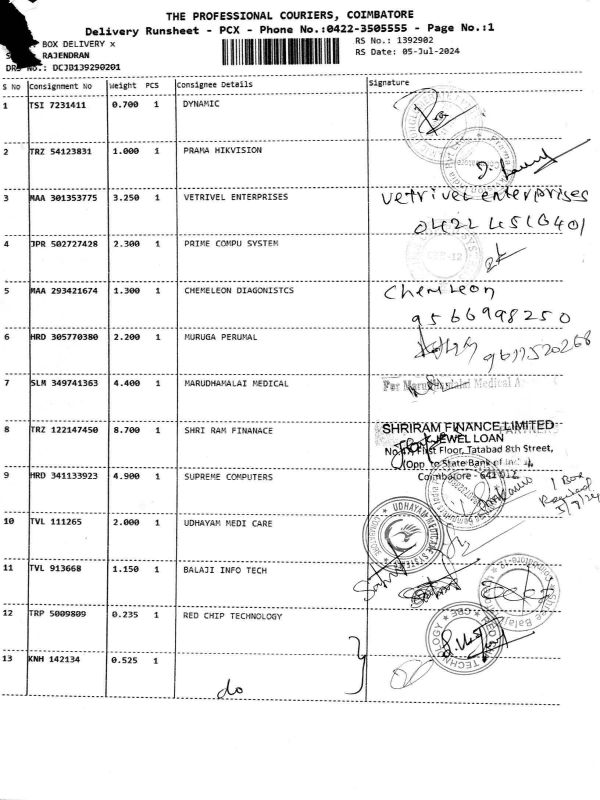 THE PROFESSIONAL COURIERS, COIMBATORE
Delivery Runsheet - PCX - Phone No.:0422-3505555 - Page No.:1
BOX DELIVERY x
RS No.: 1392902
RAJENDRAN
RS Date: 05-Jul-2024
No.: DCJD139290201
S No Consignment No Weight PCS Consignee Details Signature
1 TSI 7231411 0.700 1 DYNAMIC
2 TRZ 54123831 1.000 1 PRAMA HIKVISION
3 MAA 301353775 3.250 1 VETRIVEL ENTERPRISES vetrivel enterprises
0422 4516401
4 JPR 502727428 2.300 1 PRIME COMPU SYSTEM
5 MAA 293421674 1.300 1 CHEMELEON DIAGONISTCS Chemileon
9566998250
6 HRD 305770380 2.200 1 MURUGA PERUMAL
7 SLM 349741363 4.400 1 MARUDHAMALAI MEDICAL For Marudhamalai Medical
8 TRZ 122147450 8.700 1 SHRI RAM FINANACE SHRIRAM FINANCE LIMITED
JEWEL LOAN
First Floor, Tatabad 8th Street,
Opp to State Bank of India,
9 HRD 341133923 4.900 1 SUPREME COMPUTERS Coimbatore - 641 012
1 Box
Received
5/7/24
10 TVL 111265 2.000 1 UDHAYAM MEDI CARE UDHAYAM MEDICAL SYSTEMS
11 TVL 913668 1.150 1 BALAJI INFO TECH
12 TRP 5009809 0.235 1 RED CHIP TECHNOLOGY RED CHIP TECHNOLOGY CBE
13 KNH 142134 0.525 1
do